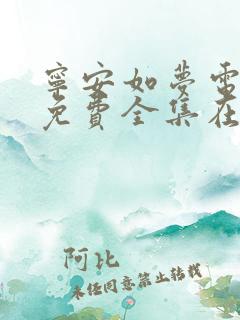 寧安如夢電
免費全集在
阿比
未经同意禁止转载